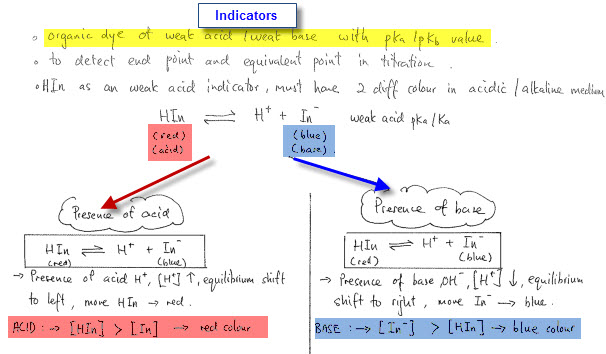 Indicators
• organic dye of weak acid / weat base with pKa / pKb value.
• to detect end point and equivalent point in titration.
• HIn as an weak acid indicator, must have 2 diff colour in acidic / alkaline medium
HIn ⇌ H⁺ + In⁻ weak acid pKa/Ka
(red) (blue)
(acid) (base)
Presence of acid
HIn ⇌ H⁺ + In⁻
(red) (blue)
→ Presence of acid H⁺, [H⁺] ↑, equilibrium shift
to left, more HIn → red.
ACID : → [HIn] > [In] → red colour
Presence of base
HIn ⇌ H⁺ + In⁻
(red) (blue)
→ Presence of base, OH⁻, [H⁺] ↓, equilibrium
shift to right, more In⁻ → blue.
BASE : → [In⁻] > [HIn] → blue colour